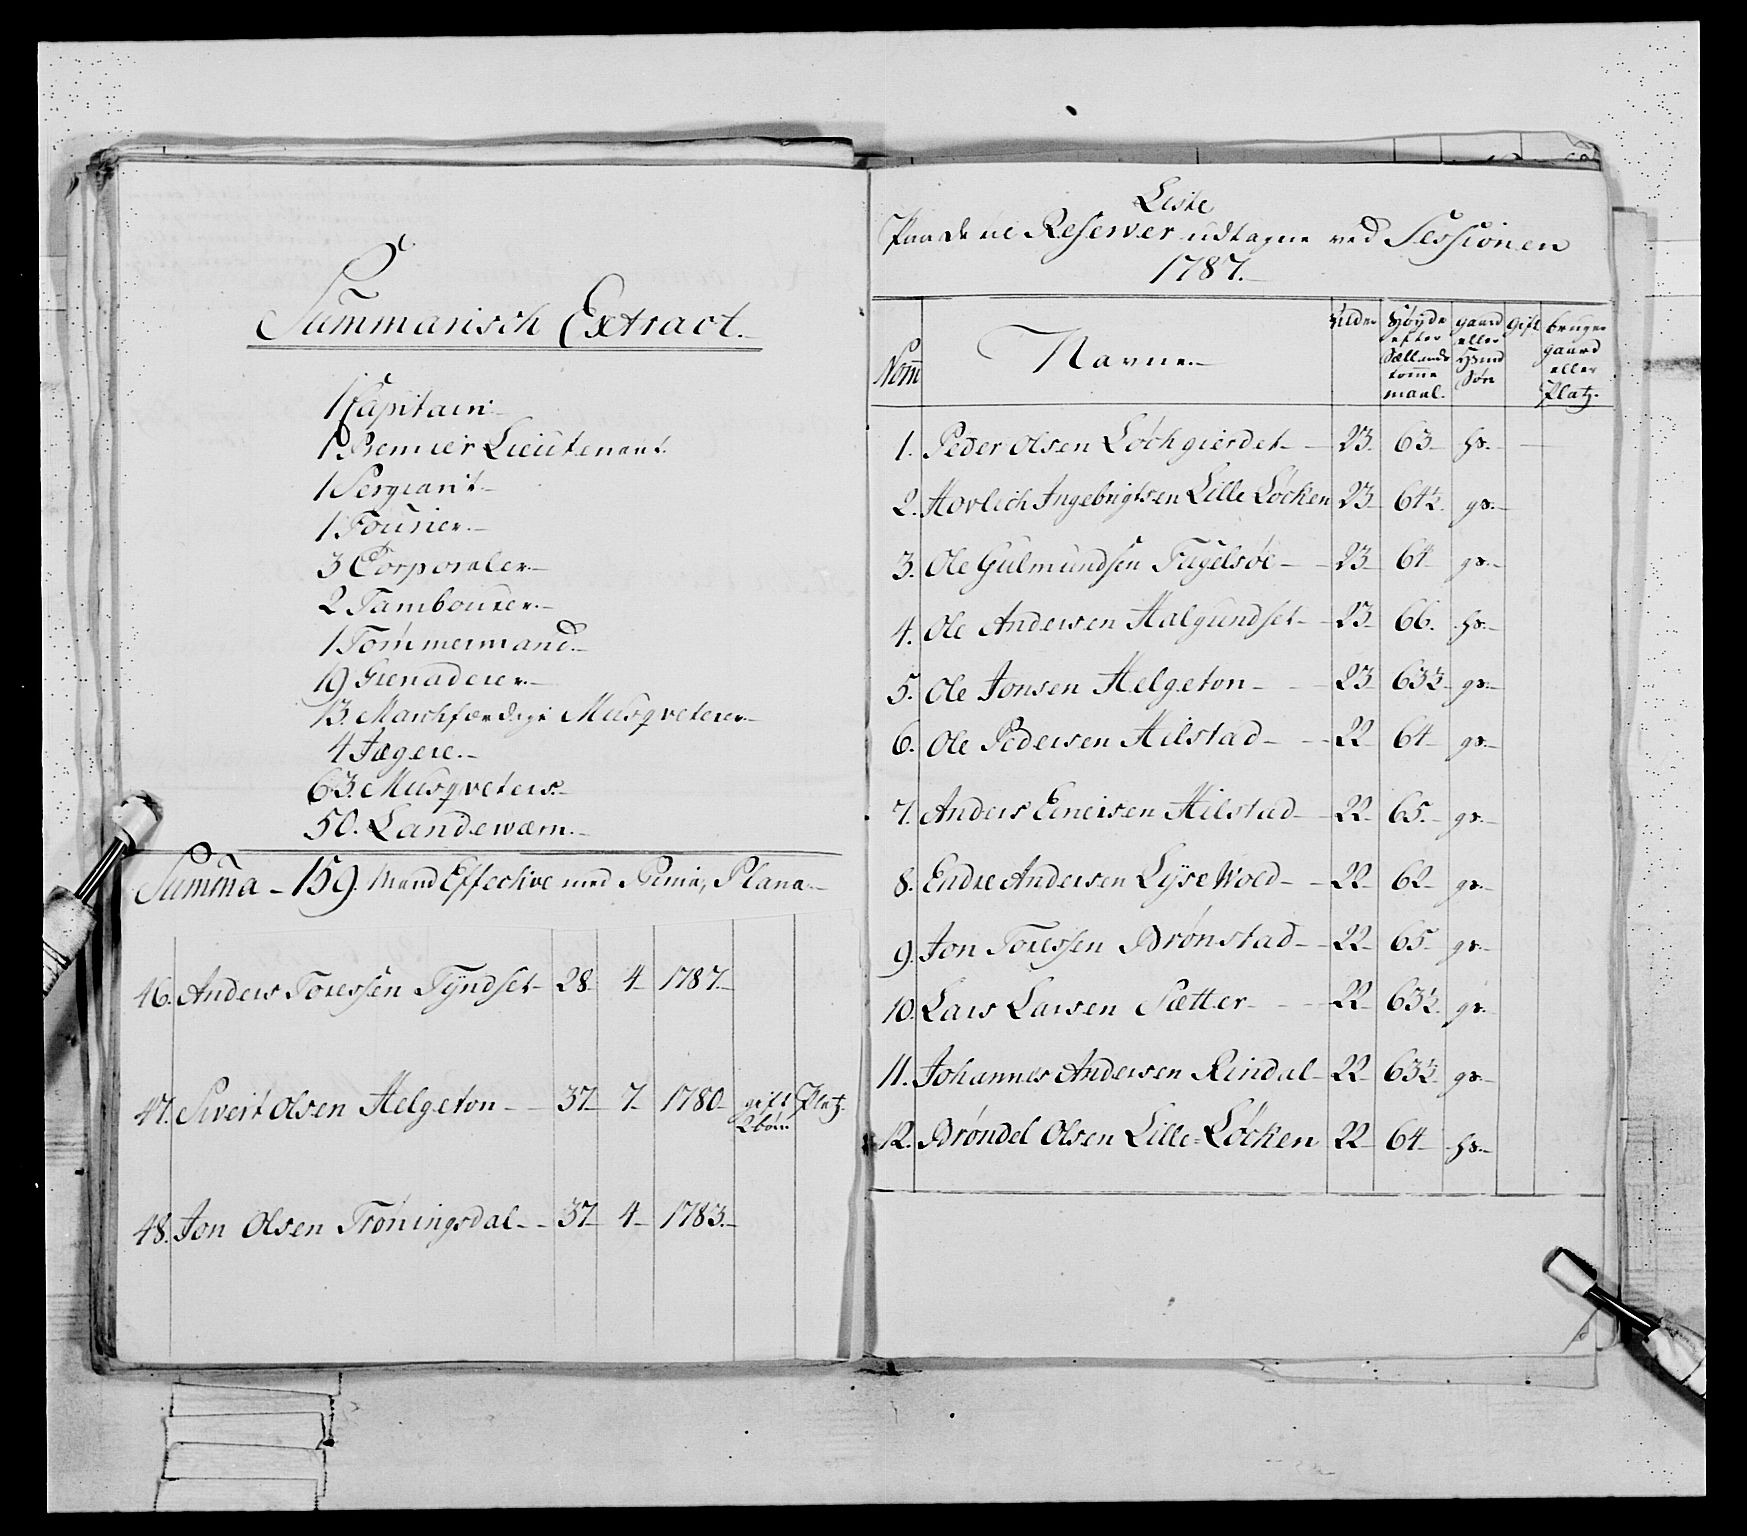 Summarisch Extract.
1 Capitain
1 Premier Lieutenant.
1 Sergiant
1 Fourier.
3 Corporaler
2 Tambourer.
1 Tömmermand.
19 Grenaderer.
13. Marchfærdige Musqveterer
4 Jægere.
63. Musqveterer
50. Landewærn.
Summa - 159. Mand Effective med Prima, Plana.
46. Anders Toressen Tyndset 28 4 1787.
47. Sivert Olsen Helgeton 37 7 1780 gift Platz.
2 börn
48. Jon Olsen Tröningsdal 37 4 1783.
Liste
Paa de ni Reserver udtagne ved Sessionen
1787.
Nom Navne. Alder Höyde efter Sællands tomme maal. gaard eller Huusmd Sön Gift bruger gaard eller Platz.
1. Peder Olsen Löchgierdet 23 63 hs.
2. Hovlich Ingebrigtsen Lille Löcken 23 64½ gs.
3. Ole Gulmundsen Fugelsöe 23 64 gs.
4. Ole Andersen Halgundset 23 66. hs.
5. Ole Jonsen Helgeton 23 63½ gs.
6. Ole Pedersen Hilstad 22 64 gs.
7. Anders Einersen Hilstad 22 65. gs.
8. Endre Andersen Lyse Wold 22 62 gs.
9. Jon Toressen Brönstad 22 65 gs.
10. Lars Larsen Sætter 22 63½ gs.
11. Johannes Andersen Rindal 22 63½ gs.
12. Bröndel Olsen Lille-Löcken 22 64 hs.